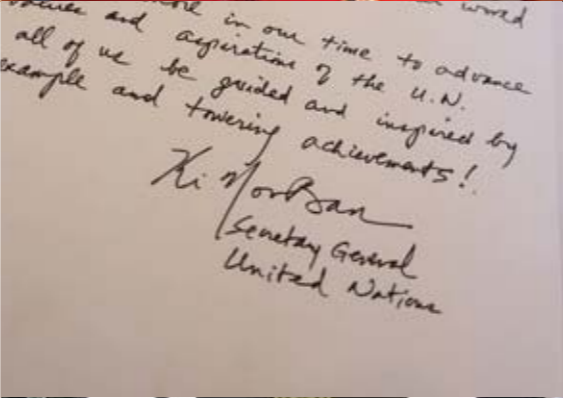 more in our time to advance
and aspirations of the U.N.
all of us be guided and inspired by
example and towering achievements!
Ki Moon Ban
Secretary General
United Nations